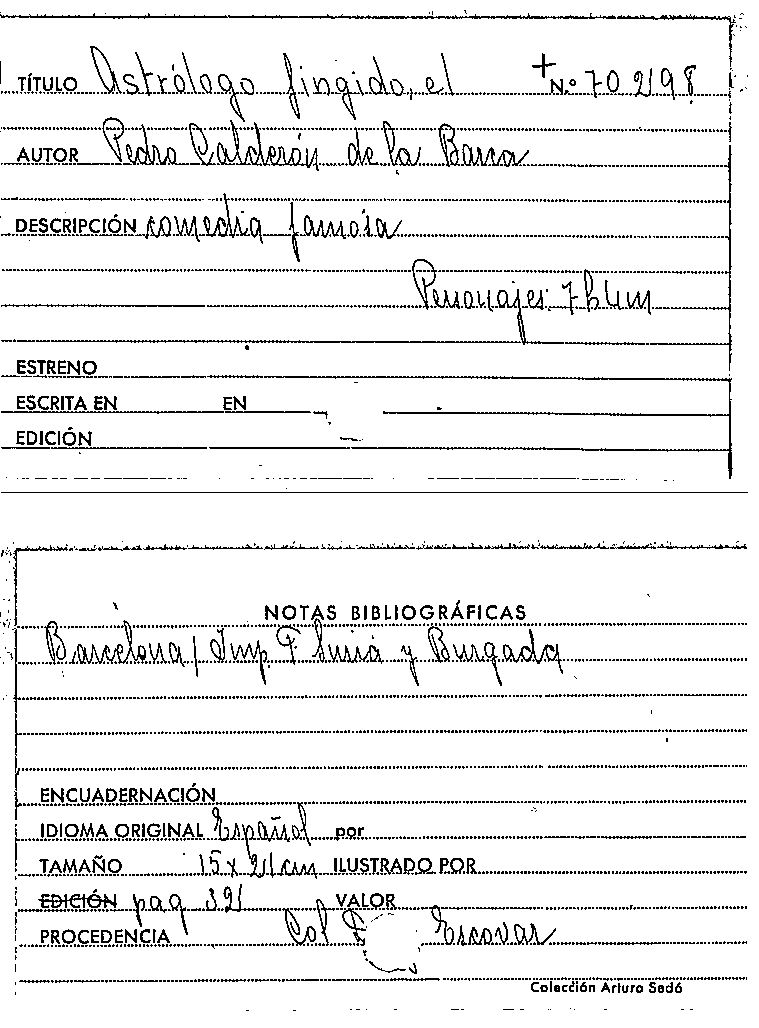 TÍTULO Astrólogo fingido, el + N.º 70298
AUTOR Pedro Calderón de la Barca
DESCRIPCIÓN comedia famosa
Personajes: 7h4m
ESTRENO
ESCRITA EN EN
EDICIÓN
NOTAS BIBLIOGRÁFICAS
Barcelona / Imp. F. Suriá y Burgada
ENCUADERNACIÓN
IDIOMA ORIGINAL Español por
TAMAÑO 15 x 21 cm ILUSTRADO POR
EDICIÓN pag 32 VALOR
PROCEDENCIA Col Escovar
Colección Arturo Sedó